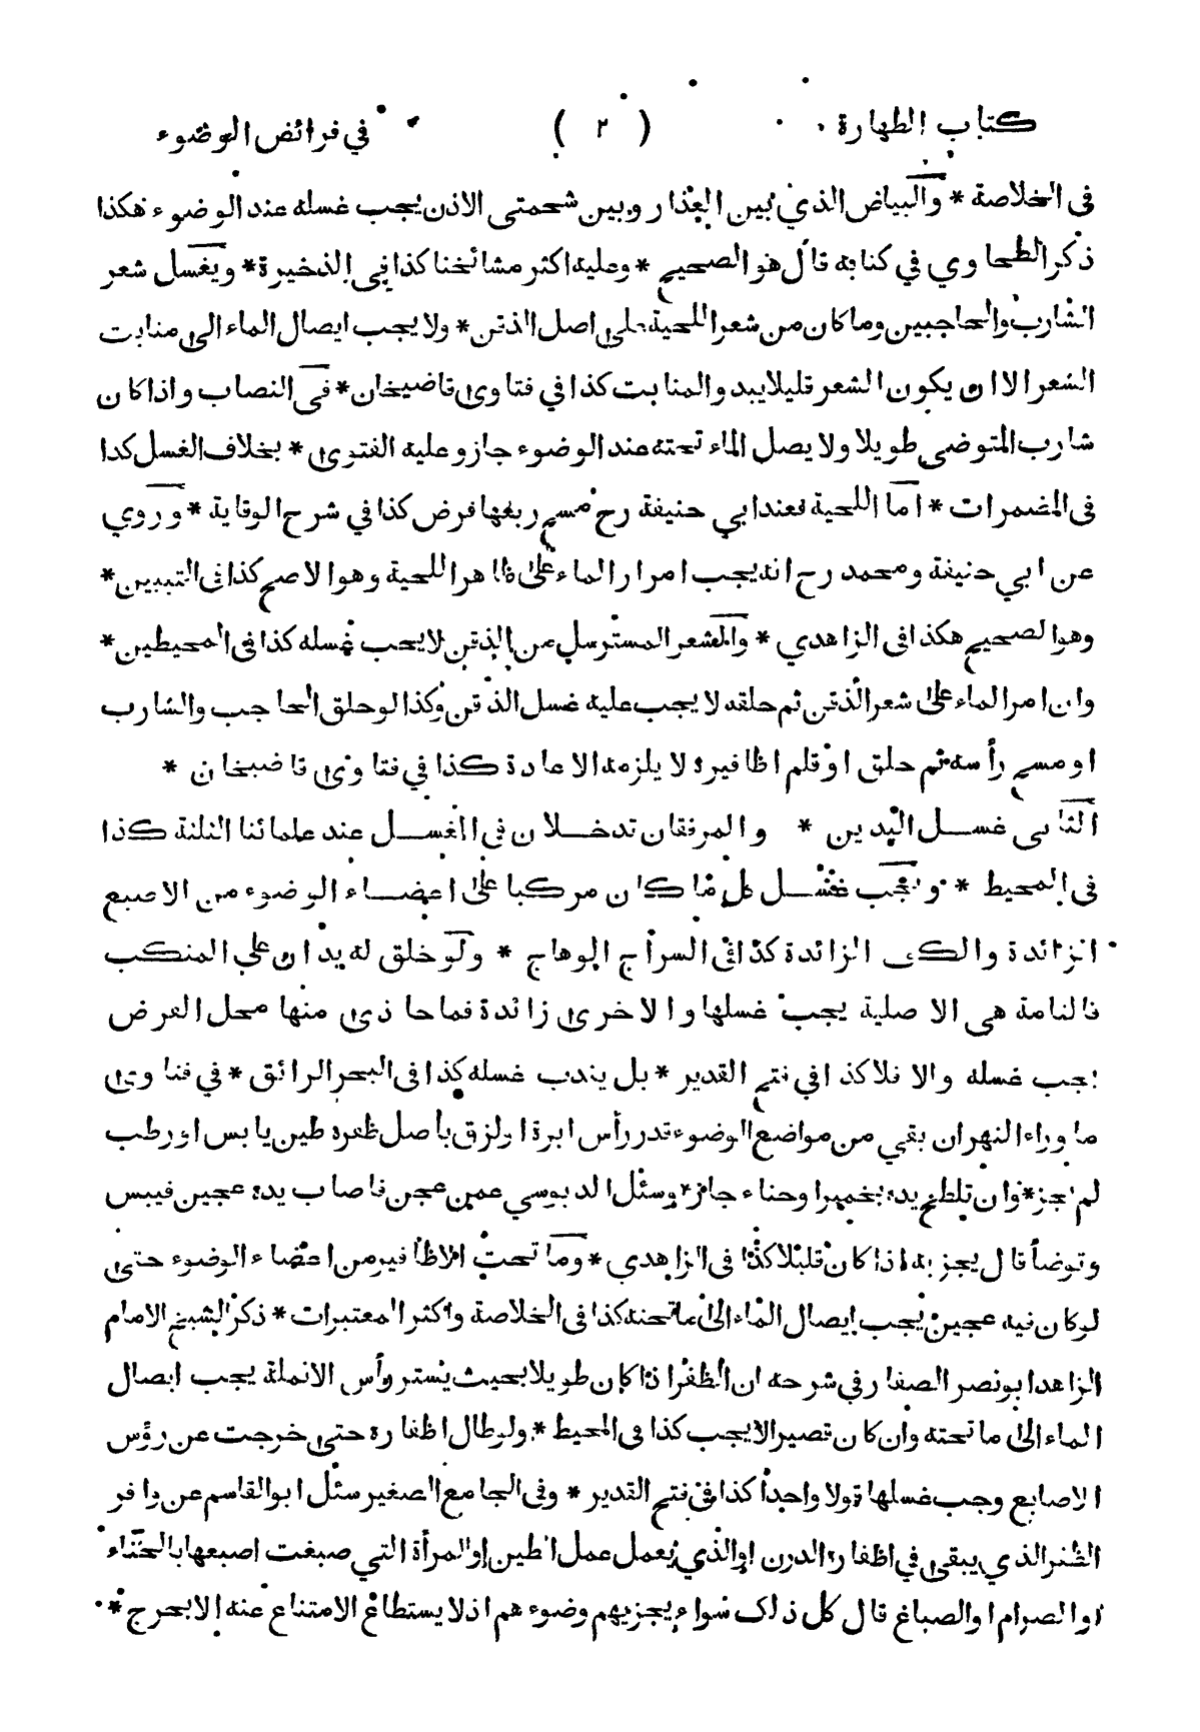 كتاب الطهارة ( ٢ ) في فرائض الوضوء
في الخلاصة * والبياض الذي بين العذار وبين شحمتي الاذن يجب غسله عند الوضوء هكذا
ذكر الطحاوي في كتابه قال هو الصحيح * وعليه اكثر مشائخنا كذا في الذخيرة * ويغسل شعر
الشارب والحاجبين وما كان من شعر اللحية على اصل الذقن * ولا يجب ايصال الماء الى منابت
الشعر الا ان يكون الشعر قليلا يبدو المنابت كذا في فتاوى قاضيخان * في النصاب واذا كان
شارب المتوضي طويلا ولا يصل الماء تحته عند الوضوء جاز وعليه الفتوى * بخلاف الغسل كذا
في المضمرات * اما اللحية فعند ابي حنيفة رح مسح ربعها فرض كذا في شرح الوقاية * وروي
عن ابي حنيفة ومحمد رح انه يجب امرار الماء على ظاهر اللحية وهو الاصح كذا في التبيين *
وهو الصحيح هكذا في الزاهدي * والشعر المسترسل من الذقن لا يجب غسله كذا في المحيطين *
وان امر الماء على شعر الذقن ثم حلقه لا يجب عليه غسل الذقن وكذا لو حلق الحاجب والشارب
او مسح رأسه ثم حلق او قلم اظافيره لا يلزمه الاعادة كذا في فتاوى قاضيخان *
الثاني غسل اليدين * والمرفقان تدخلان في الغسل عند علمائنا الثلثة كذا
في المحيط * ويجب غسل كل ما كان مركبا على اعضاء الوضوء من الاصبع
الزائدة والكف الزائدة كذا في السراج الوهاج * ولو خلق له يدان على المنكب
فالتامة هي الاصلية يجب غسلها والاخرى زائدة فما حاذى منها محل الفرض
يجب غسله والا فلا كذا في فتح القدير * بل يندب غسله كذا في البحر الرائق * في فتاوى
ما وراء النهر ان بقي من مواضع الوضوء قدر رأس ابرة او لزق بأصل ظفره طين يابس او رطب
لم يجز * وان تلطخ يده بخمير او حناء جاز * وسئل الدبوسي عمن عجن فاصاب يده عجين فيبس
وتوضأ قال يجزيه اذا كان قليلا كذا في الزاهدي * وما تحت الاظافير من اعضاء الوضوء حتى
لو كان فيه عجين يجب ايصال الماء الى ما تحته كذا في الخلاصة واكثر المعتبرات * ذكر الشيخ الامام
الزاهد ابو نصر الصفار في شرحه ان الظفر اذا كان طويلا بحيث يستر رأس الانملة يجب ايصال
الماء الى ما تحته وان كان قصيرا لا يجب كذا في المحيط * ولو طال اظفاره حتى خرجت عن رؤس
الاصابع وجب غسلها قولا واحدا كذا في فتح القدير * وفي الجامع الصغير سئل ابو القاسم عن وافر
الظفر الذي يبقى في اظفاره الدرن او الذي يعمل عمل الطين او المرأة التي صبغت اصبعها بالحناء
او الصرام او الصباغ قال كل ذلك سواء يجزيهم وضوءهم اذ لا يستطاع الامتناع عنه الا بحرج *